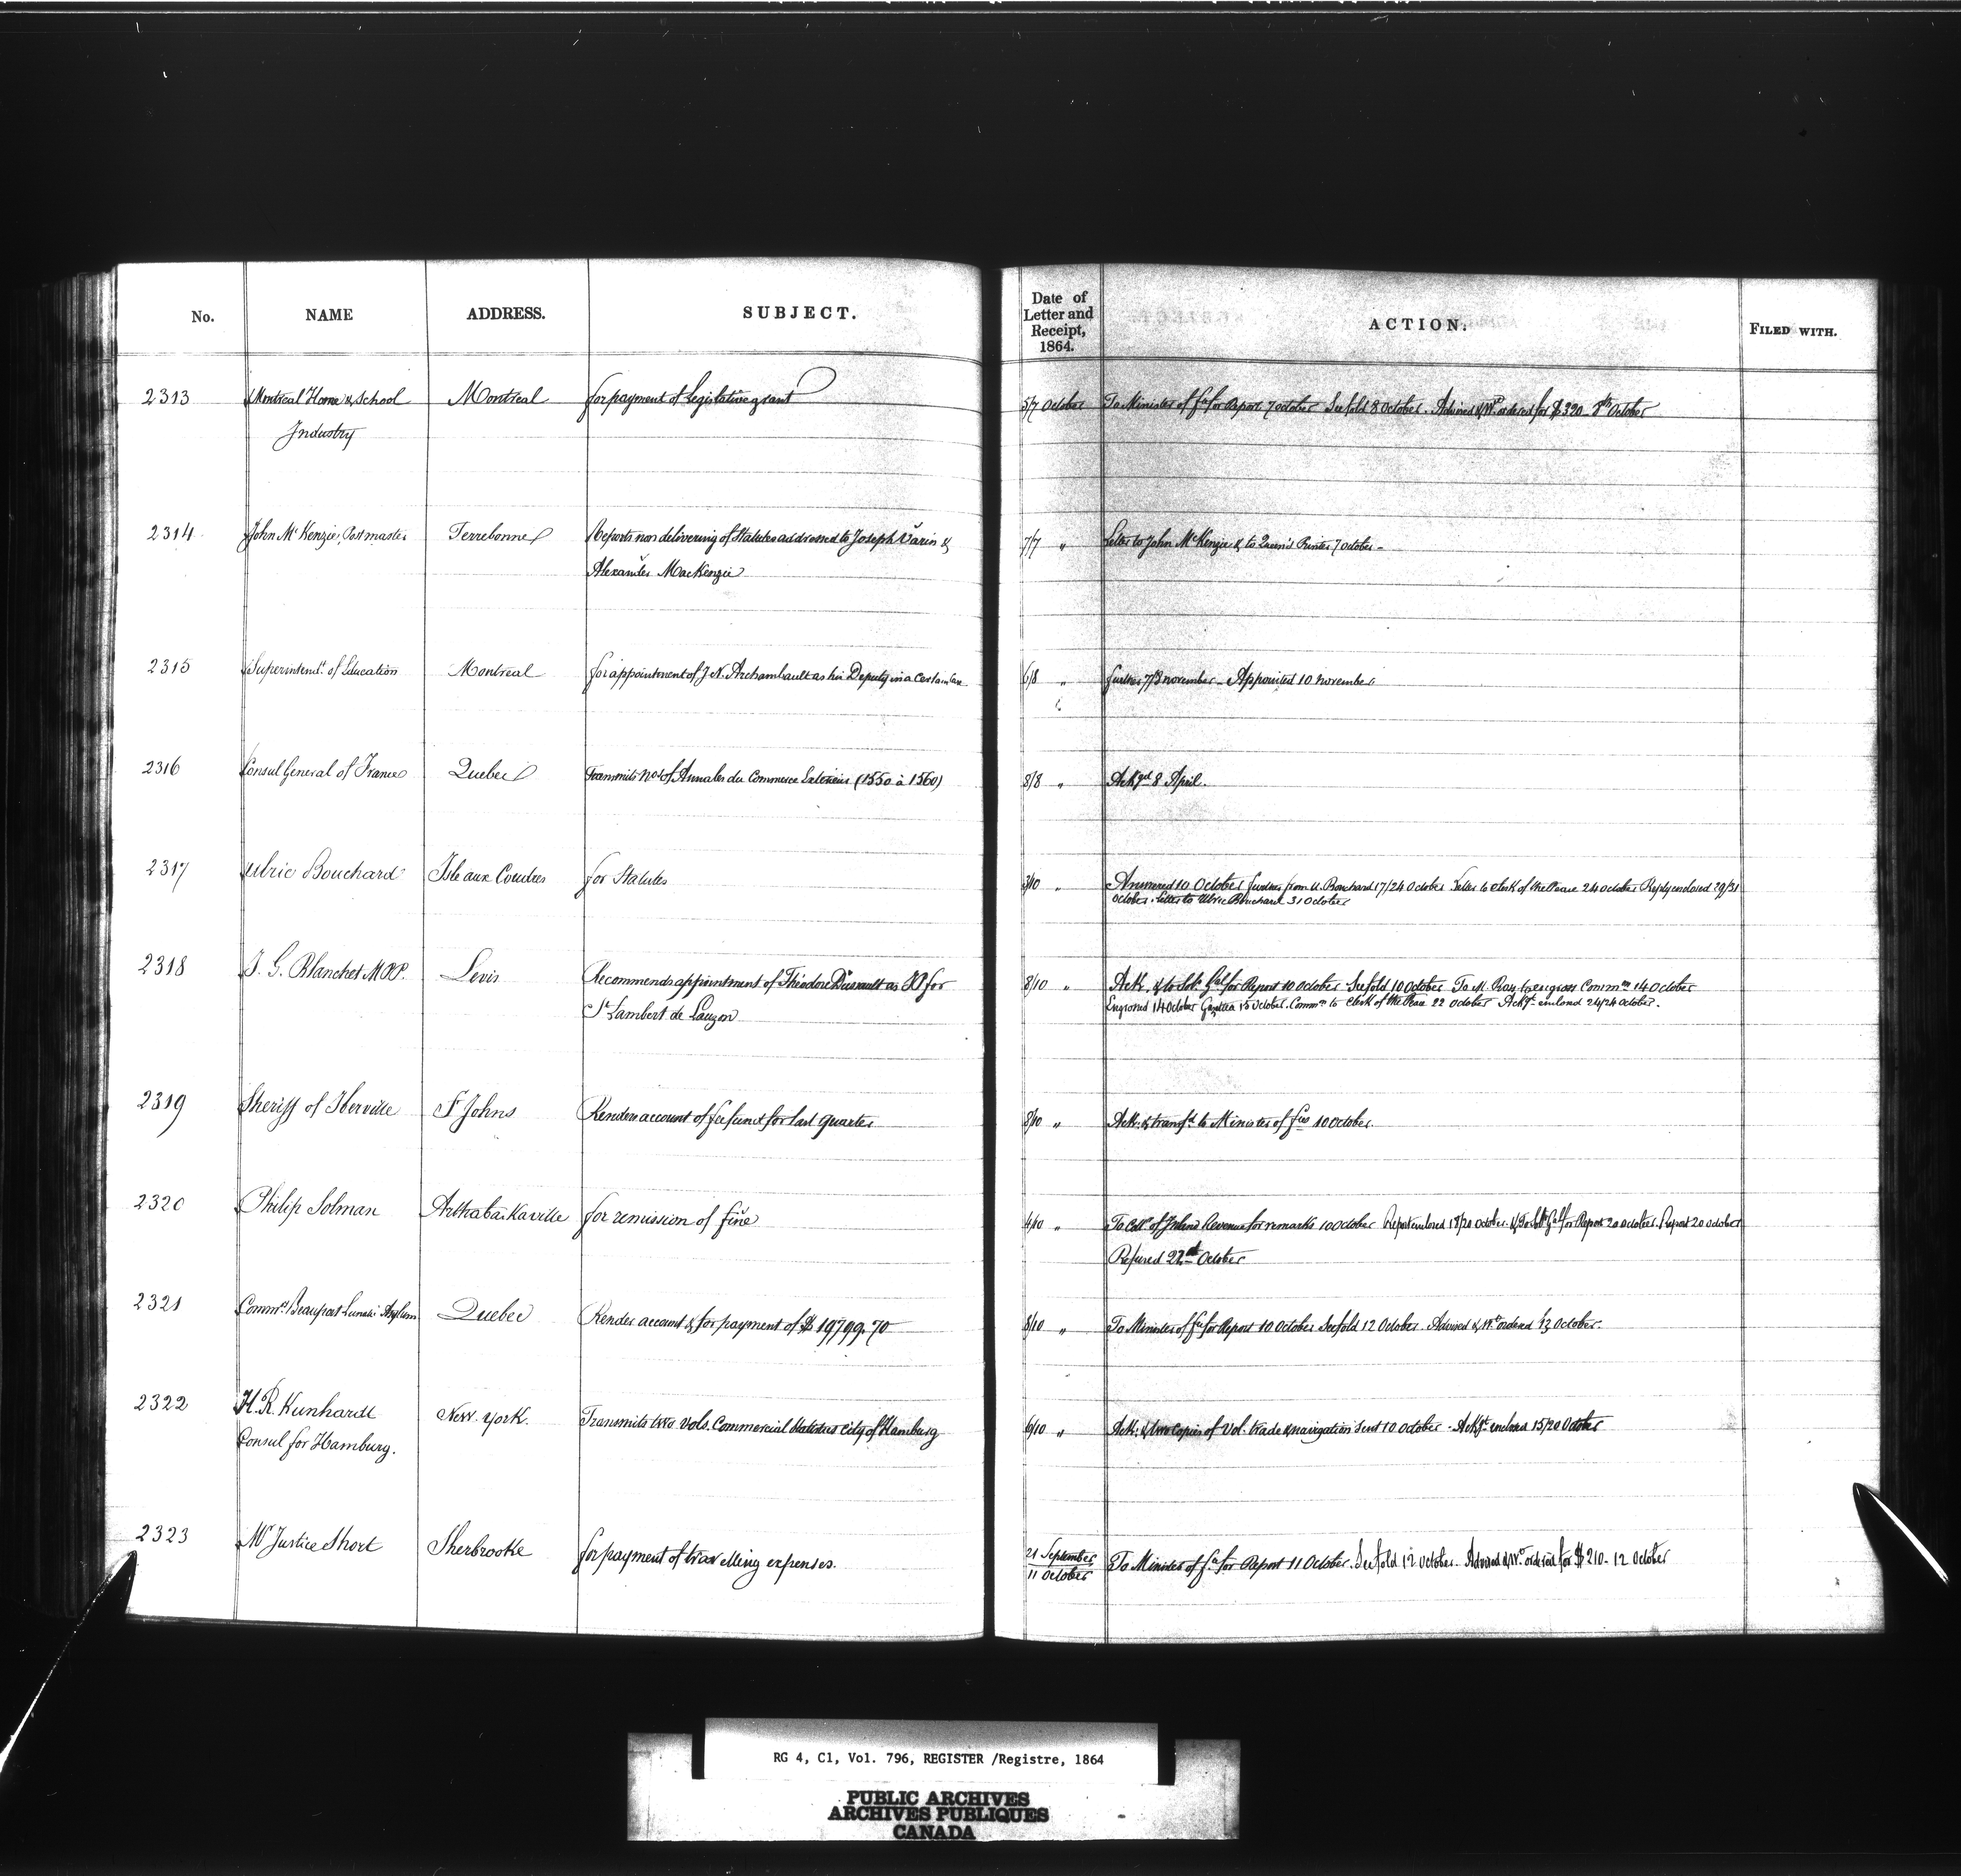 No. NAME ADDRESS. SUBJECT. Date of Letter and Receipt, 1864. ACTION. FILED WITH.
2313 Montreal Home & School Montreal for payment of Legislative grant 5/7 October To Minister of Fce for Report 7 October See fold 8 October. Advised & Wt ordered for $320 - 8th October
Industry
2314 John McKenzie, Postmaster Terrebonne Reports non delivering of Statutes addressed to Joseph Varin & 7/7 " Letter to John McKenzie & to Queen's Printer 7 October -
Alexander MacKenzie
2315 Superintendt of Education Montreal for appointment of J. N. Archambault as his Deputy in a certain case 6/8 " further 7/8 november - Appointed 10 november
2316 Consul General of France Quebec Transmits No of Annales du Commerce Exterieur (1550 à 1560) 8/8 " Ackged 8 April.
2317 Ulric Bouchard Isle aux Coudres for Statutes 3/10 " Answered 10 October further from U. Bouchard 17/24 October Letter to Clerk of the Peace 24 October Reply enclosed 29/31
October. Letter to Ulric Bouchard 31 October
2318 J. G. Blanchet M.P.P. Levis Recommends appointment of Théodore Dussault as JP for 8/10 " Ack. & to Solr Gal for Report 10 October See fold 10 October To M. Ray to engross Commn 14 October
St Lambert de Lauzon Engrossed 14 October Gazettea 15 October. Commn to Clerk of the Peace 22 October Ackgt enclosed 24/26 October.
2319 Sheriff of Iberville St Johns Renders account of fee fund for last quarter 8/10 " Ack. & transfd to Minister of fce 10 October.
2320 Philip Solman Arthabaskaville for remission of fine 4/10 " To Collr of Inland Revenue for remarks 10 October Report enclosed 18/20 October. & To Solr Gal for Report 20 October. Report 20 October
Refused 22nd October
2321 Commrs Beauport Lunatic Asylum Quebec Render account & for payment of $19799.70 8/10 " To Minister of fce for Report 10 October See fold 12 October. Advised & Wt ordered 13 October.
2322 H. R. Kunhardt New York. Transmits two vols. Commercial Statistics City of Hamburg 6/10 " Ack. & two copies of Vol. trade & navigation sent 10 October - Ackgt enclosed 15/20 October
Consul for Hamburg.
2323 Mr Justice Short Sherbrooke for payment of travelling expenses. 21 September To Minister of fce for Report 11 October. See fold 12 October. Advised & Wt ordered for $210 - 12 October
11 October
RG 4, C1, Vol. 796, REGISTER /Registre, 1864
PUBLIC ARCHIVES
ARCHIVES PUBLIQUES
CANADA